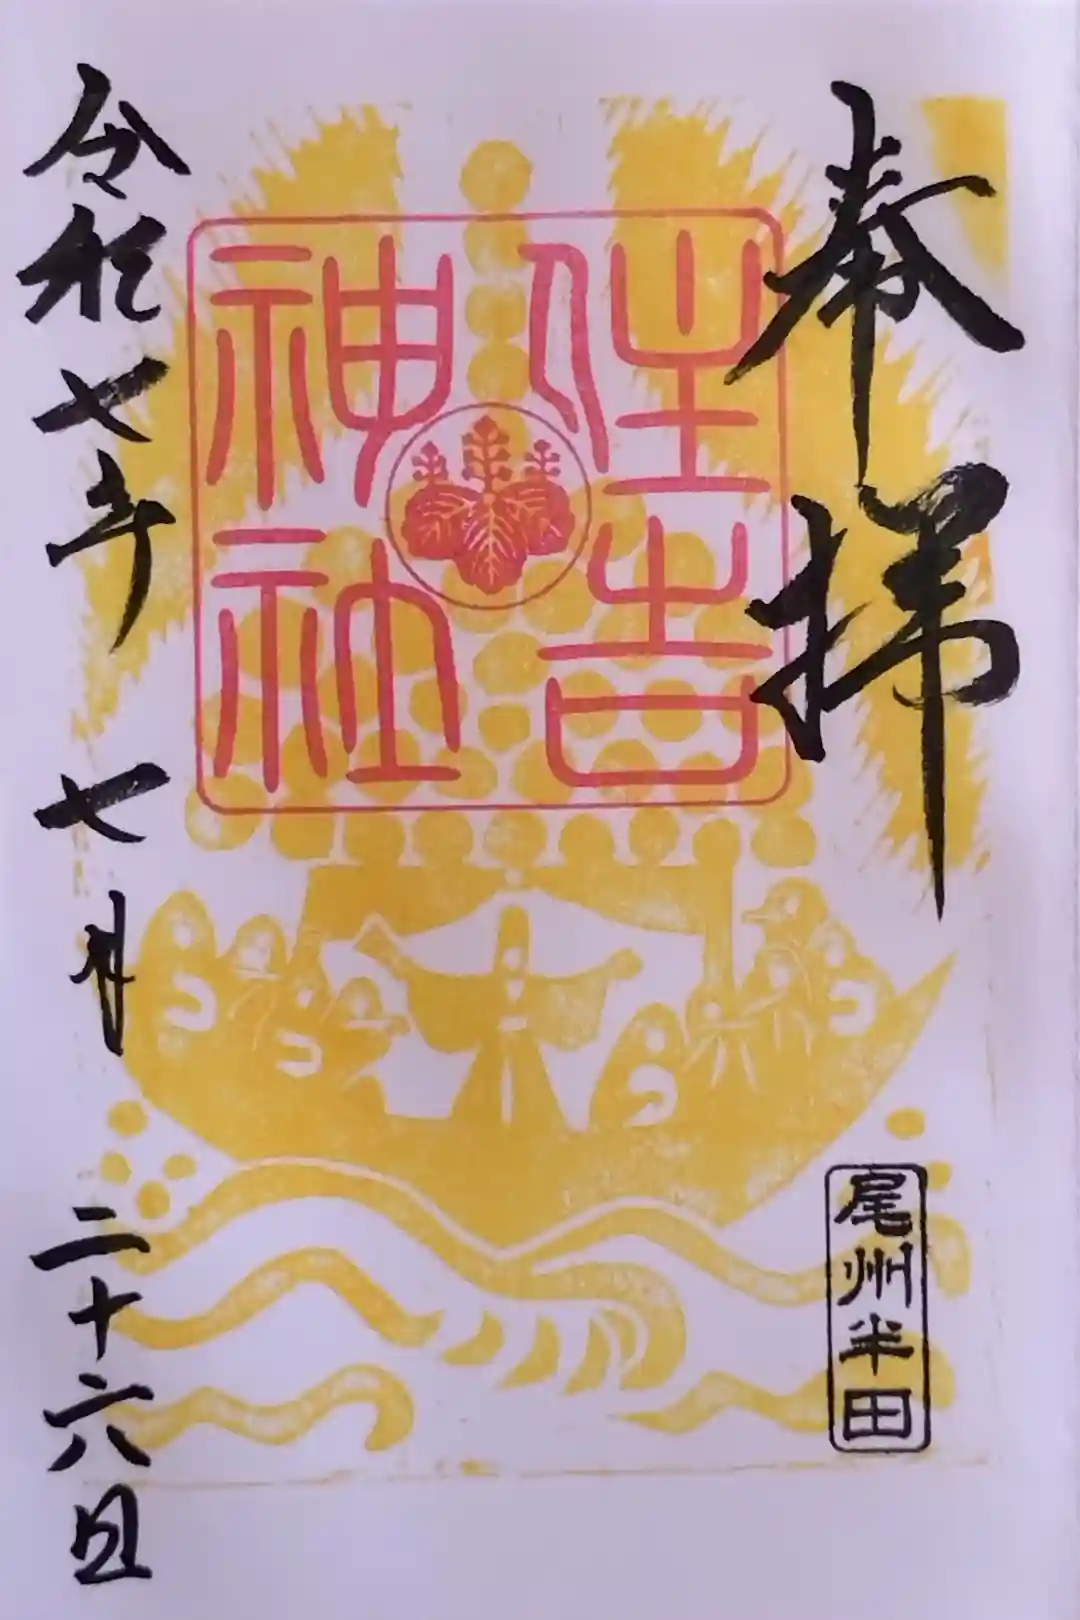 奉拝
住吉
神社
尾州半田
令和七年 七月 二十六日